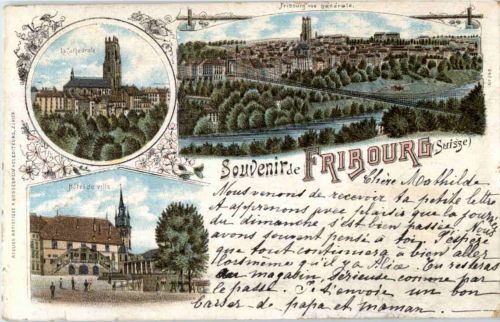 Fribourg vue générale.
La Cathédrale
Souvenir de FRIBOURG (Suisse)
Hôtel de ville
Chère Mathilde
Nous venons de recevoir ta petite lettre
et apprenons avec plaisir que la journée
du dimanche s'est bien passée. Nous
avons souvent pensé à toi. J'espère
que tout continuera à bien aller
comme
tu magasin sérieuse comme par
le passé. Je t'envoie un bon
baiser de papa et maman.